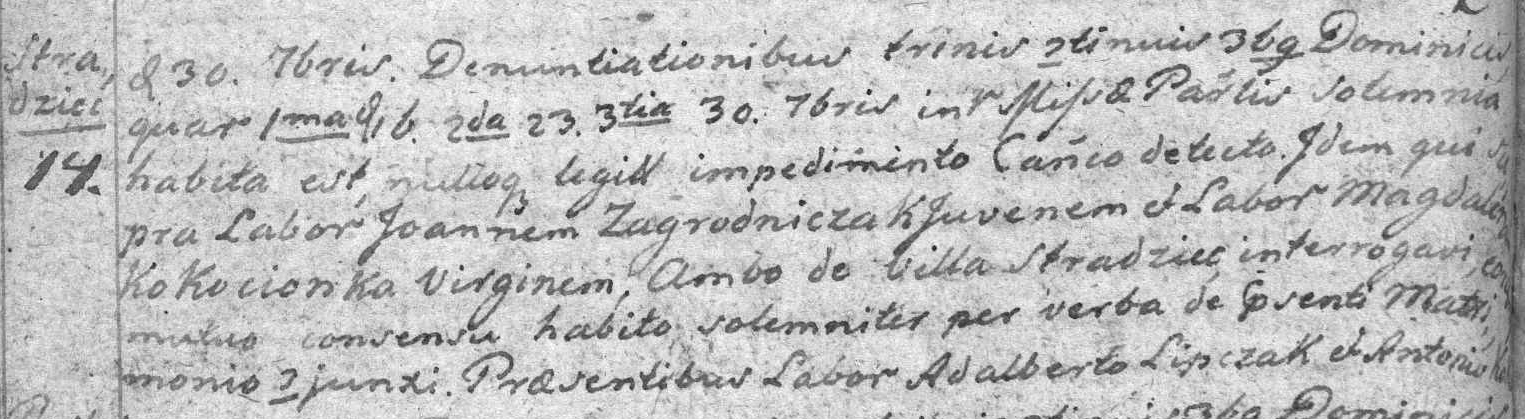 Stra,
dziec
14.
d 30. 7bris. Denuntiationibus trinis 2tinuis 3bg Dominicis
quar 1ma d 16. 2da 23. 3tia 30. 7bris intr Missæ Parlis solemnia
habita est, nulloq legitt impedimento Cañco detecto. Idem qui su
pra Labor Joannem Zagrodniczak Juvenem et Labor Magdalen
Kokocionka Virginem, Ambo de Villa Stradziec interrogavi, eor
mutuo consensu habito solemniter per verba de Psenti Matri,
monio 2junxi. Præsentibus Labor Adalberto Lipczak et Antonio